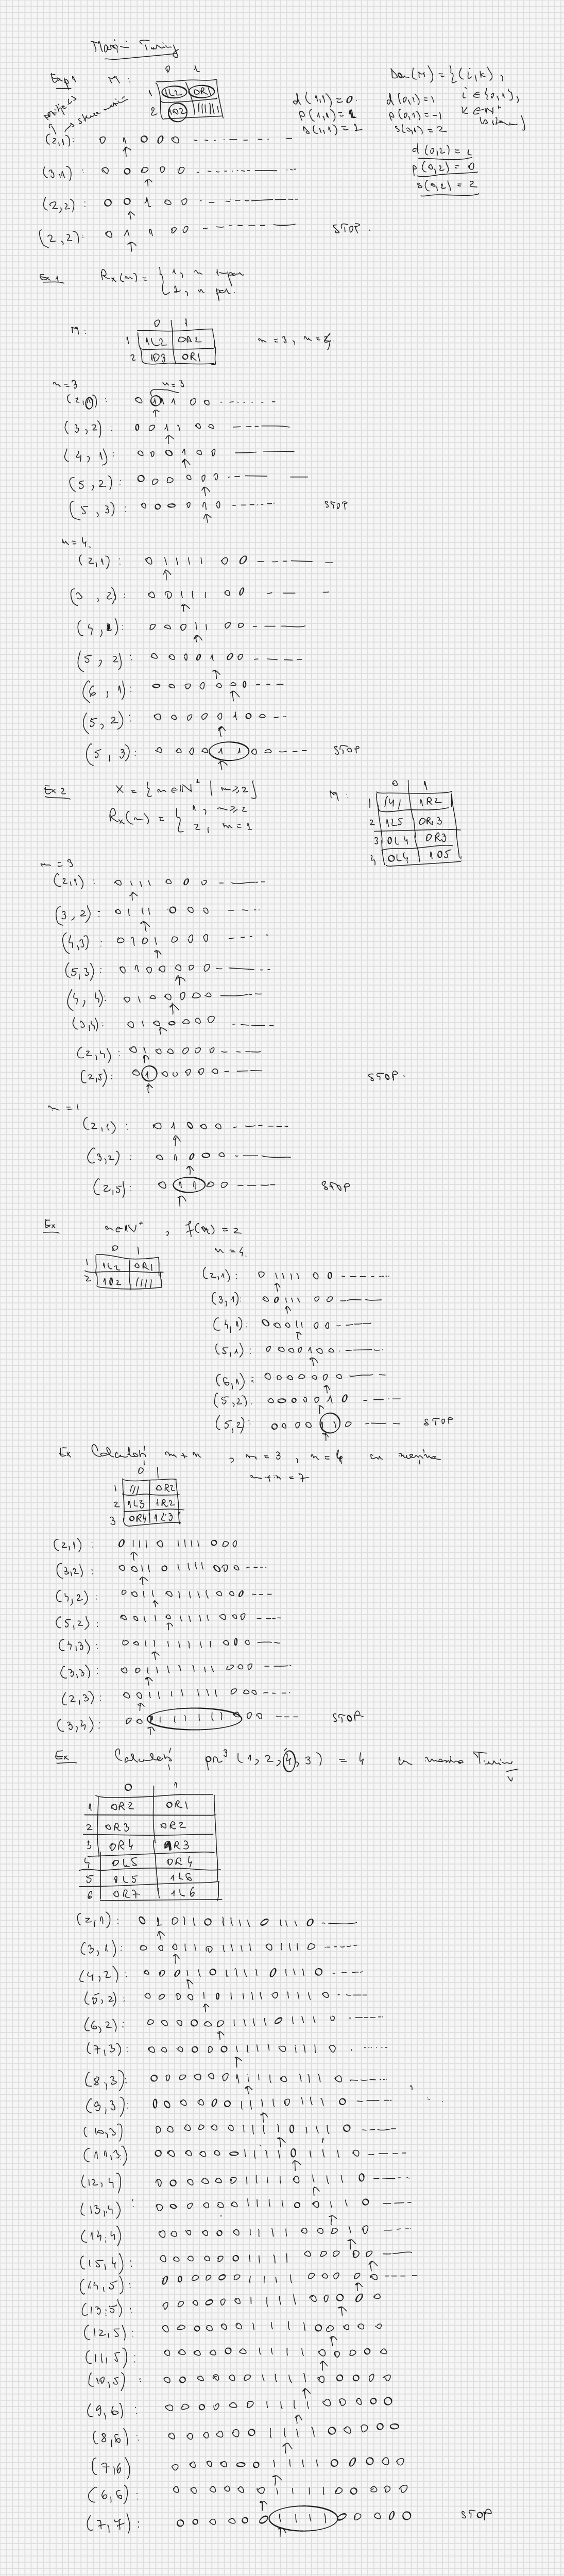 Mașini Turing
Exp 1 M: 0 1
1 1L2 0R1
2 1O2 //////
d(1,1)=0 d(0,1)=1
p(1,1)=1 p(0,1)=-1
s(1,1)=1 s(0,1)=2
Dom(M) = {(i,k),
i ∈ {0,1},
k ∈ N*
d(0,2)=1
p(0,2)=0
s(0,2)=2
(2,1): 0 1 0 0 0
(3,1): 0 0 0 0 0
(2,2): 0 0 1 0 0
(2,2): 0 1 1 0 0 STOP.
Ex 1 Rx(n) = { 1, n impar
2, n par.
M: 0 1
1 1L2 0R2
2 1O3 0R1
n=3, n=4
n=3 n=3
(2,1): 0 1 1 1 0 0
(3,2): 0 0 1 1 0 0
(4,1): 0 0 0 1 0 0
(5,2): 0 0 0 0 0 0
(5,3): 0 0 0 0 1 0 STOP
n=4.
(2,1): 0 1 1 1 1 0 0
(3,2): 0 0 1 1 1 0 0
(4,1): 0 0 0 1 1 0 0
(5,2): 0 0 0 0 1 0 0
(6,1): 0 0 0 0 0 0 0
(5,2): 0 0 0 0 0 1 0 0
(5,3): 0 0 0 0 1 1 0 0 STOP
Ex 2 X = {n ∈ N* | n ≥ 2}
Rx(n) = { 1, n ≥ 2
2, n = 1
M: 0 1
1 /4/ 1R2
2 1L5 0R3
3 0L4 0R3
4 0L4 1O5
n=3
(2,1): 0 1 1 1 0 0 0
(3,2): 0 1 1 1 0 0 0
(4,3): 0 1 0 1 0 0 0
(5,3): 0 1 0 0 0 0 0
(4,4): 0 1 0 0 0 0 0
(3,4): 0 1 0 0 0 0 0
(2,4): 0 1 0 0 0 0 0
(2,5): 0 1 0 0 0 0 0 STOP.
n=1
(2,1): 0 1 0 0 0
(3,2): 0 1 0 0 0
(2,5): 0 1 1 0 0 STOP
Ex n ∈ N*, f(n) = 2
0 1
1 1L2 0R1
2 1O2 ////
n=4.
(2,1): 0 1 1 1 1 0 0
(3,1): 0 0 1 1 1 0 0
(4,1): 0 0 0 1 1 0 0
(5,1): 0 0 0 0 1 0 0
(6,1): 0 0 0 0 0 0 0
(5,2): 0 0 0 0 0 1 0
(5,2): 0 0 0 0 1 1 0 STOP
Ex Calculați m+n, m=3, n=4 cu mașina
m+n=7
0 1
1 /// 0R2
2 1L3 1R2
3 0R4 1L3
(2,1): 0 1 1 1 0 1 1 1 1 0 0 0
(3,2): 0 0 1 1 0 1 1 1 1 0 0 0
(4,2): 0 0 1 1 0 1 1 1 1 0 0 0
(5,2): 0 0 1 1 0 1 1 1 1 0 0 0
(4,3): 0 0 1 1 1 1 1 1 1 0 0 0
(3,3): 0 0 1 1 1 1 1 1 1 0 0 0
(2,3): 0 0 1 1 1 1 1 1 1 0 0 0
(3,4): 0 0 1 1 1 1 1 1 1 0 0 STOP
Ex Calculați pr³(1,2,4,3) = 4 cu mașina Turing
0 1
1 0R2 0R1
2 0R3 0R2
3 0R4 1R3
4 0L5 0R4
5 0L5 1L6
6 0R7 1L6
(2,1): 0 1 0 1 1 0 1 1 1 1 0 1 1 1 0
(3,1): 0 0 0 1 1 0 1 1 1 1 0 1 1 1 0
(4,2): 0 0 0 1 1 0 1 1 1 1 0 1 1 1 0
(5,2): 0 0 0 0 1 0 1 1 1 1 0 1 1 1 0
(6,2): 0 0 0 0 0 0 1 1 1 1 0 1 1 1 0
(7,3): 0 0 0 0 0 0 1 1 1 1 0 1 1 1 0
(8,3): 0 0 0 0 0 0 1 1 1 1 0 1 1 1 0
(9,3): 0 0 0 0 0 0 1 1 1 1 0 1 1 1 0
(10,3) 0 0 0 0 0 0 1 1 1 1 0 1 1 1 0
(11,3: 0 0 0 0 0 0 1 1 1 1 0 1 1 1 0
(12,4) 0 0 0 0 0 0 1 1 1 1 0 1 1 1 0
(13,4) 0 0 0 0 0 0 1 1 1 1 0 0 1 1 0
(14,4) 0 0 0 0 0 0 1 1 1 1 0 0 0 1 0
(15,4): 0 0 0 0 0 0 1 1 1 1 0 0 0 0 0
(14,5): 0 0 0 0 0 0 1 1 1 1 0 0 0 0 0
(13,5): 0 0 0 0 0 0 1 1 1 1 0 0 0 0 0
(12,5): 0 0 0 0 0 0 1 1 1 1 0 0 0 0 0
(11,5) 0 0 0 0 0 0 1 1 1 1 0 0 0 0 0
(10,5): 0 0 0 0 0 0 1 1 1 1 0 0 0 0 0
(9,6): 0 0 0 0 0 0 1 1 1 1 0 0 0 0 0
(8,6): 0 0 0 0 0 0 1 1 1 1 0 0 0 0 0
(7,6) 0 0 0 0 0 0 1 1 1 1 0 0 0 0 0
(6,6): 0 0 0 0 0 0 1 1 1 1 0 0 0 0 0
(7,7): 0 0 0 0 0 0 1 1 1 1 0 0 0 0 0 STOP